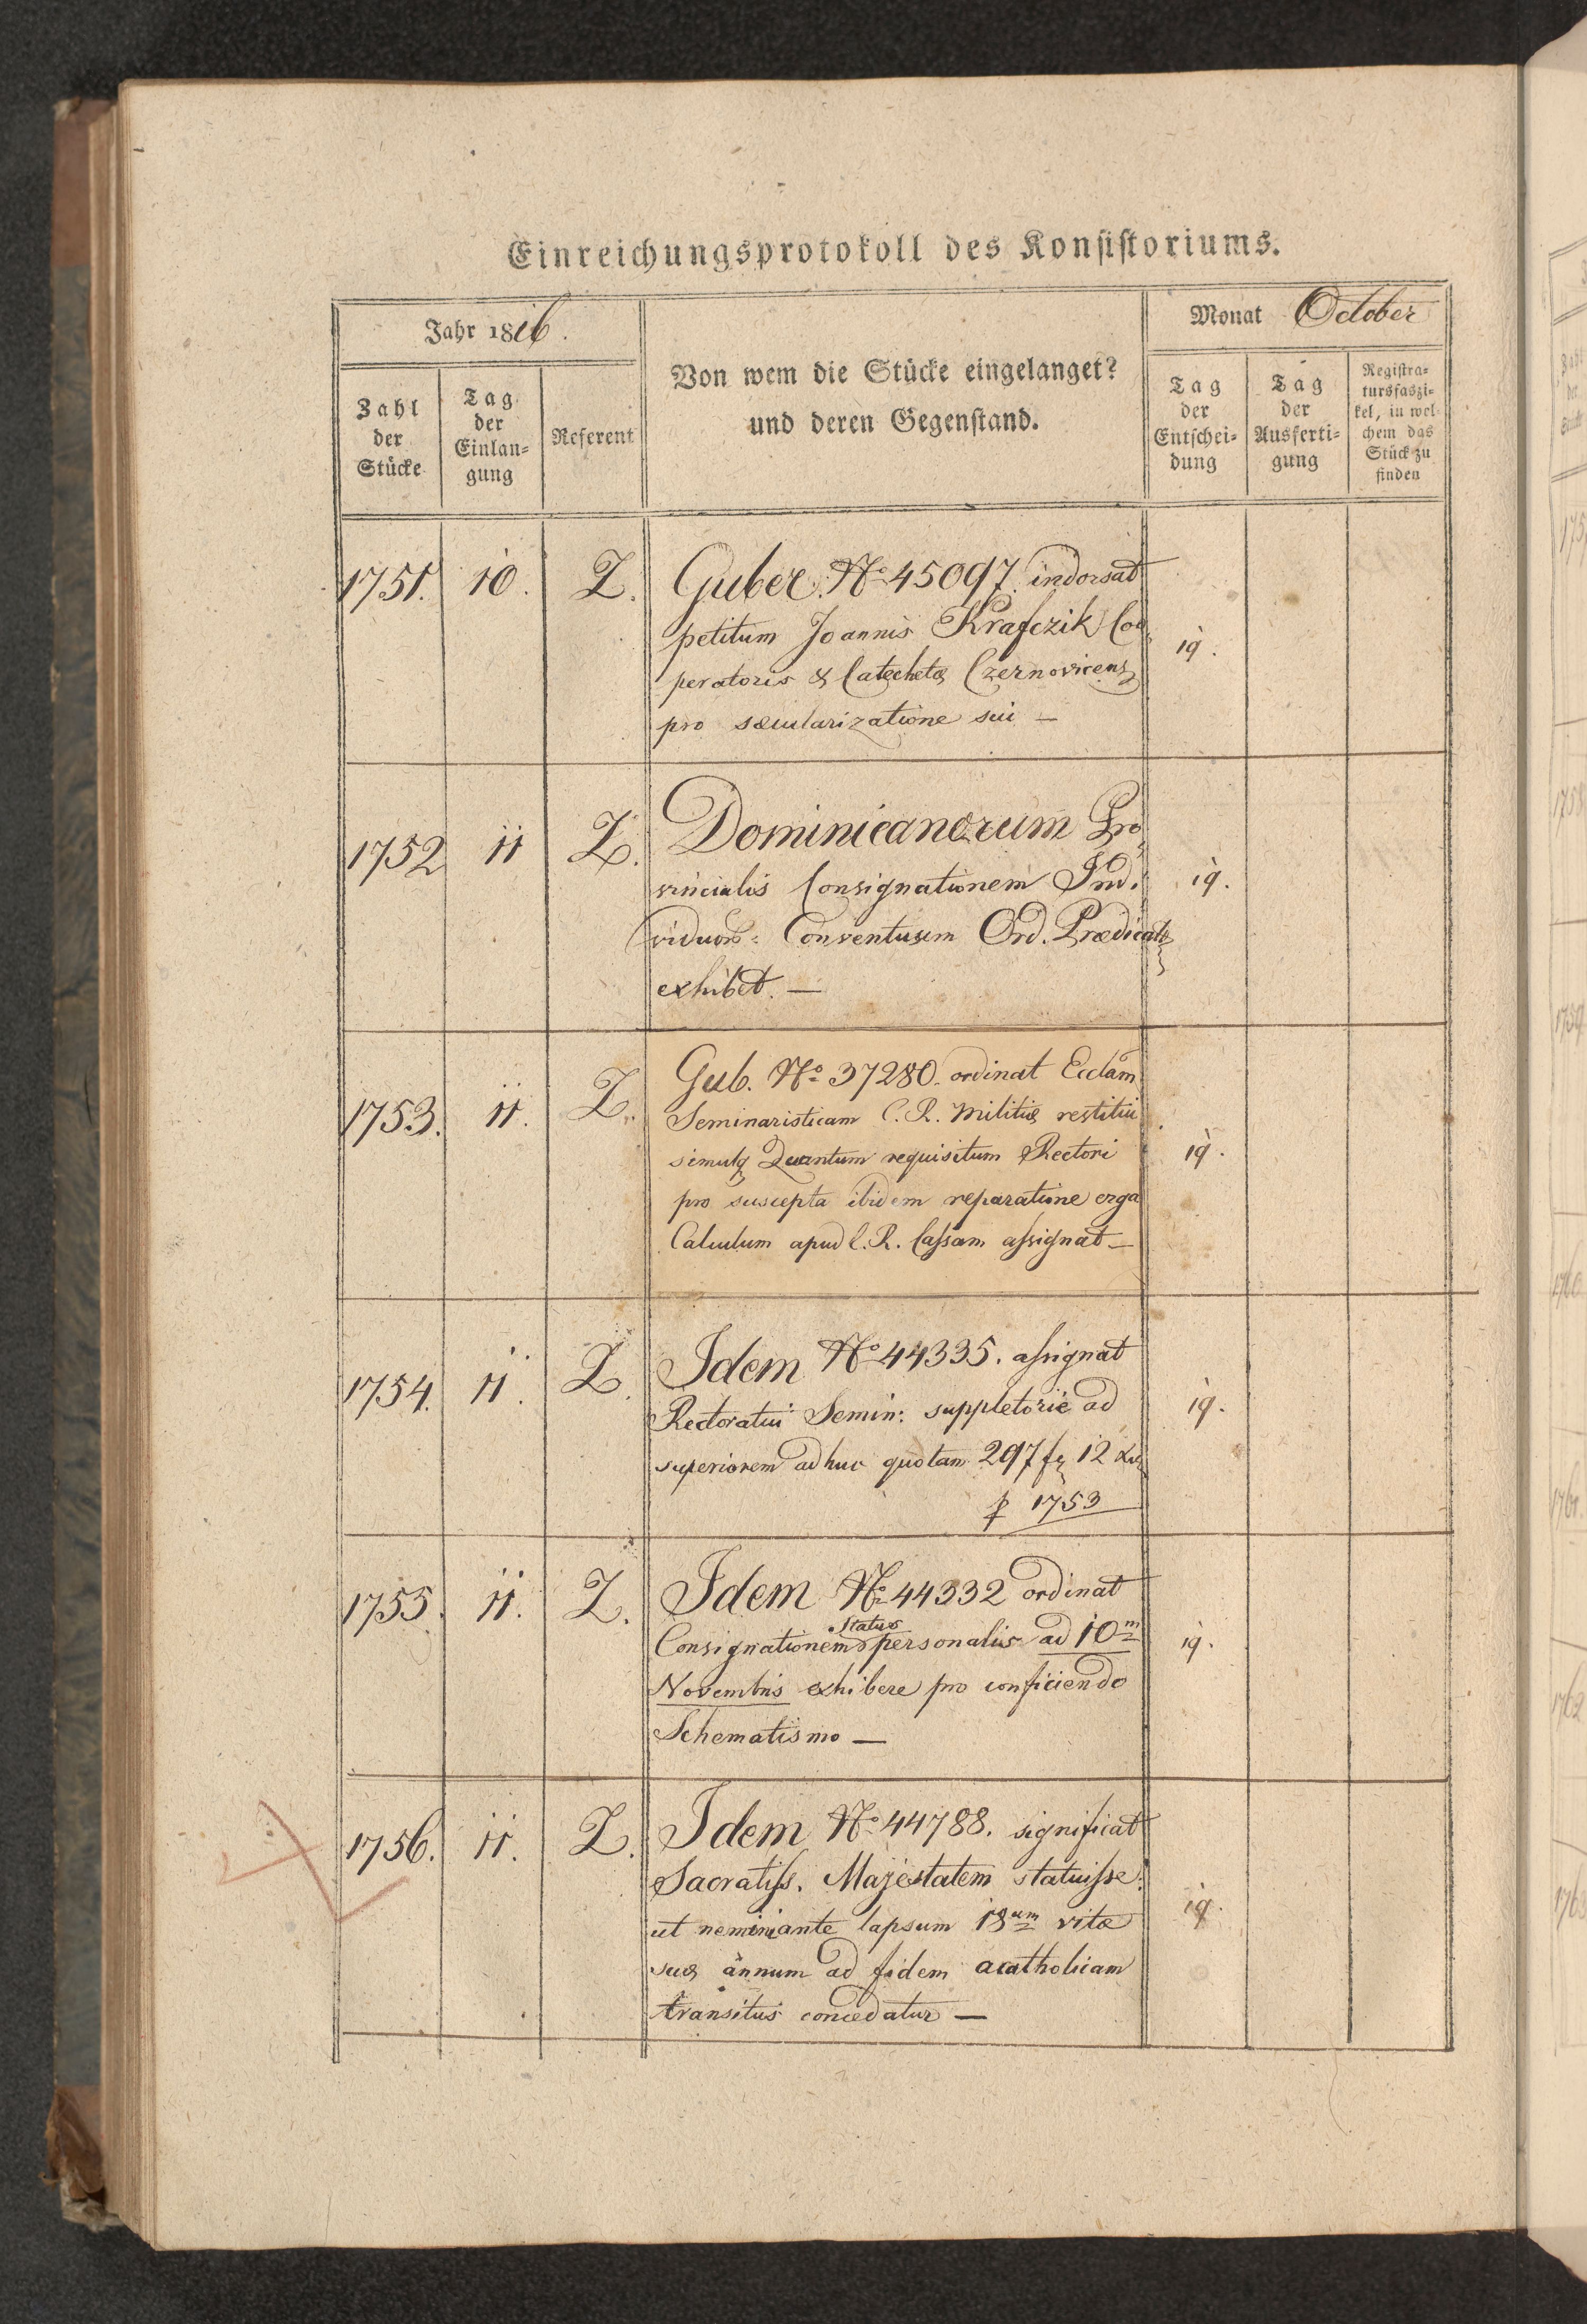 Einreichungsprotokoll des Konsistoriums.
Jahr 1816.
Von wem die Stücke eingelanget?
und deren Gegenstand.
Monat October
Zahl
der
Stücke
Tag
der
Einlan=
gung
Referent
Tag
der
Entschei=
dung
Tag
der
Ausferti=
gung
Registra=
tursfaszi=
kel, in wel=
chem das
Stück zu
finden
1751. 10. Z. Guber. No 45097. indorsat
petitum Joannis Krafczik Coo
peratoris & Catechetæ Czernovicens
pro sæcularizatione sui —
19.
1752 11 Z. Dominicanorum Pro
vincialis Consignationem Indi
viduor: Conventuum Ord. Prædicat
exhibet. —
19.
1753. 11. Z. Gub. No 37280. ordinat Ecclam
Seminaristicam C. R. Militiæ restitui
simulq Quantum requisitum Rectori
pro suscepta ibidem reparatione erga
Calculum apud C. R. Cassam assignat —
19.
1754. 11. Z. Idem No 44335. assignat
Rectoratui Semin: suppletorie ad
superiorem adhuc quotam 297 fr 12 xr
p 1753
19.
1755. 11. Z. Idem No 44332 ordinat
Status
Consignationem personalis ad 10m
Novembris exhibere pro conficiendo
Schematismo —
19.
1756. 11. Z. Idem No 44788. significat
Sacratiss. Majestatem statuisse:
ut nemini ante lapsum 18um vitæ
suæ annum ad fidem acatholicam
transitus concedatur —
19.